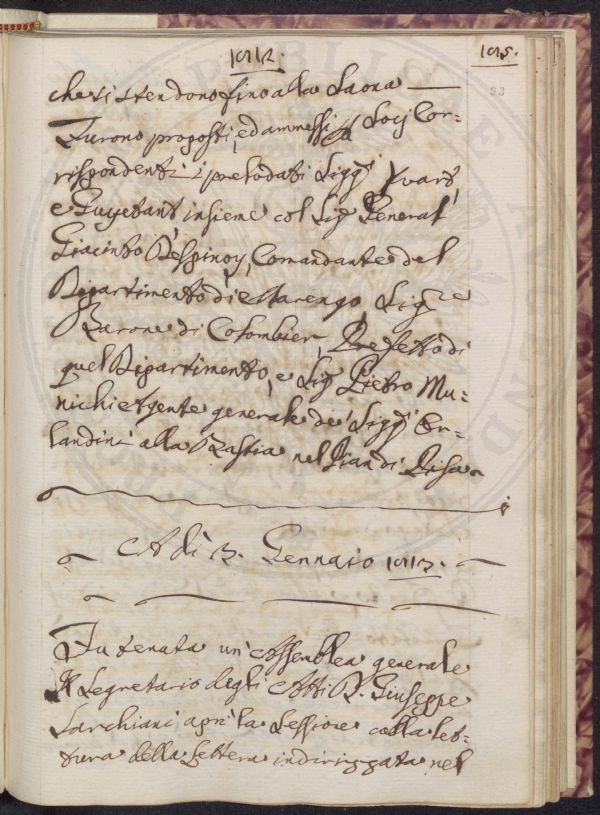 1812.
195.
93
che si stendono fino alla Saona
Furono proposti, ed ammessi Socj Cor=
rispondenti i prelodati Sigg.ri Yvart,
e Guyetant insieme col Sig. General
Giacinto Despinoy, Comandante del
Dipartimento di Marengo, Sig.re
Barone di Colombier, Prefetto di
quel Dipartimento, e Sig. Pietro Mu=
nichi Agente generale de' Sigg.ri Or=
landini alla Bastia nel Pian di Pisa
A dì 3. Gennaio 1813.
Fu tenata un'Assemblea generale
Il Segretario degli Atti D. Giuseppe
Sarchiani aprì la Sessione colla let=
tura della Lettera indirizzata nel